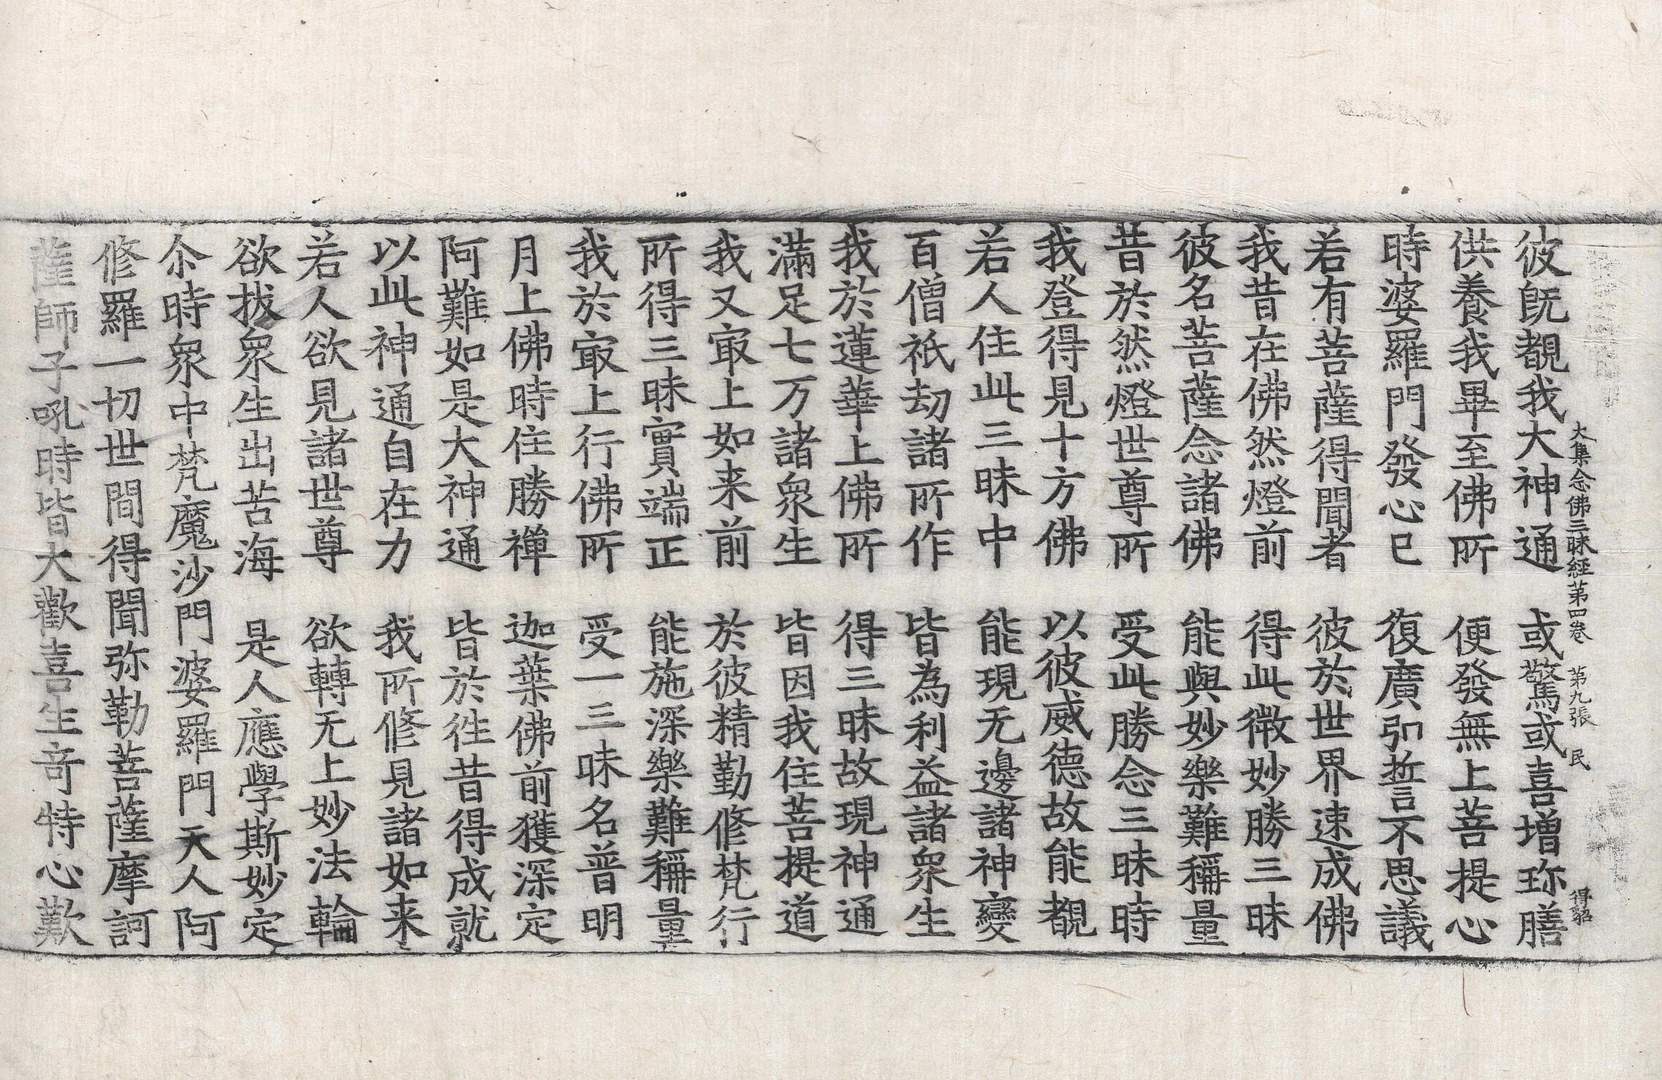 大集念佛三昧經第四卷　第九張　民　得貂
彼旣覩我大神通　或驚或喜增珎膳
供養我畢至佛所　便發無上菩提心
時婆羅門發心已　復廣弘誓不思議
若有菩薩得聞者　彼於世界速成佛
我昔在佛然燈前　得此微妙勝三昧
彼名菩薩念諸佛　能與妙樂難稱量
昔於然燈世尊所　受此勝念三昧時
我登得見十方佛　以彼威德故能覩
若人住此三昧中　能現无邊諸神變
百僧祇劫諸所作　皆為利益諸衆生
我於蓮華上佛所　得三昧故現神通
滿足七万諸衆生　皆因我住菩提道
我又㝡上如来前　於彼精勤修梵行
所得三昧實端正　能施深樂難稱量
我於㝡上行佛所　受一三昧名普明
月上佛時住勝禪　迦葉佛前獲深定
阿難如是大神通　皆於徃昔得成就
以此神通自在力　我所修見諸如来
若人欲見諸世尊　欲轉无上妙法輪
欲拔衆生出苦海　是人應學斯妙定
尒時衆中梵魔沙門婆羅門天人阿
修羅一切世間得聞弥勒菩薩摩訶
薩師子吼時皆大歡喜生竒特心歎